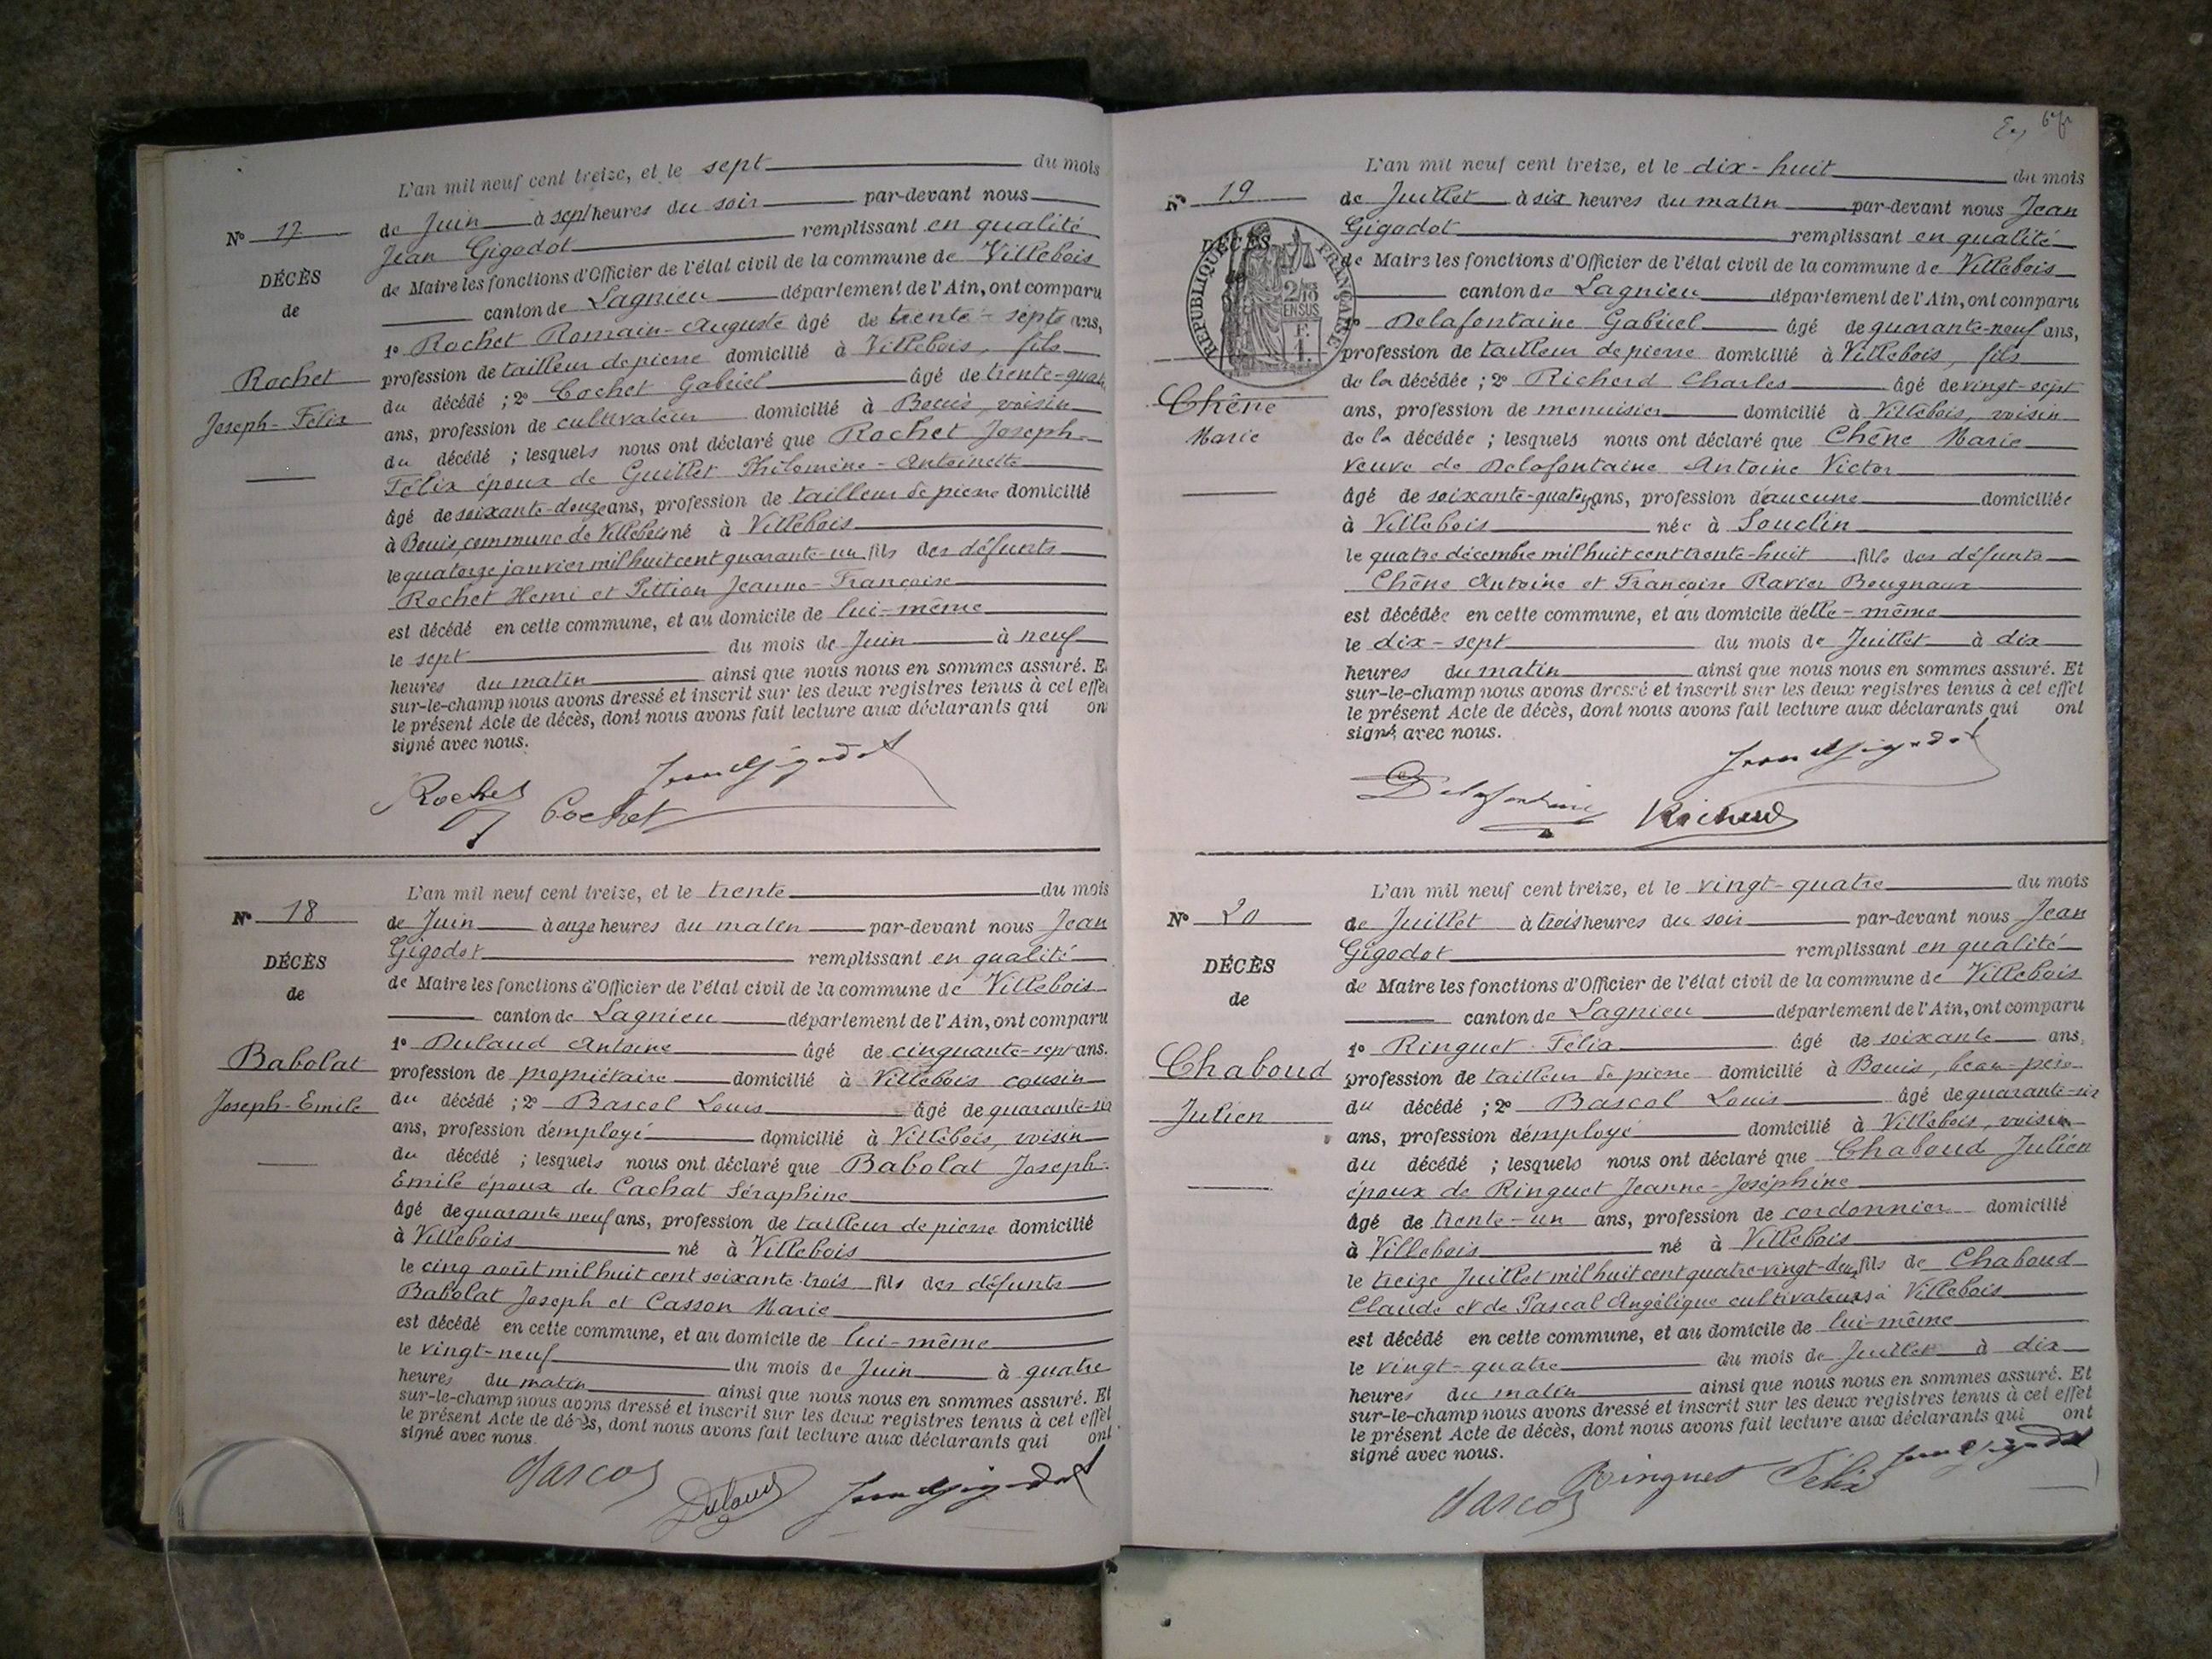 L'an mil neuf cent treize, et le sept du mois
N° 17
de Juin à sept heures du soir par-devant nous
Jean Gigodot remplissant en qualité
DÉCÈS
de Maire les fonctions d'Officier de l'état civil de la commune de Villebois
de
canton de Lagnieu département de l'Ain, ont comparu
1° Rochet Romain-Auguste âgé de trente-septs ans,
Rochet
profession de tailleur de pierre domicilié à Villebois, fils
Joseph-Félix
du décédé ; 2° Cochet Gabriel âgé de trente-quatre
ans, profession de cultivateur domicilié à Bouis, voisin
du décédé ; lesquels nous ont déclaré que Rochet Joseph-
Félix époux de Guillet Philomène-Antoinette
âgé de soixante-douze ans, profession de tailleur de pierre domicilié
à Bouis, commune de Villebois né à Villebois
le quatorze janvier mil huit cent quarante-un fils des défunts
Rochet Henri et Pittion Jeanne-Françoise
est décédé en cette commune, et au domicile de lui-même
le sept du mois de Juin à neuf
heures du matin ainsi que nous nous en sommes assuré. E
sur-le-champ nous avons dressé et inscrit sur les deux registres tenus à cet effet
le présent Acte de décès, dont nous avons fait lecture aux déclarants qui ont
signé avec nous.
Rochet Cochet Jean Gigodot
L'an mil neuf cent treize, et le trente du mois
N° 18
de Juin à onze heures du matin par-devant nous Jean
Gigodot remplissant en qualité
DÉCÈS
de Maire les fonctions d'Officier de l'état civil de la commune de Villebois
de
canton de Lagnieu département de l'Ain, ont comparu
1° Dulaud Antoine âgé de cinquante-sept ans.
Babolat
profession de propriétaire domicilié à Villebois cousin
Joseph-Emile
du décédé ; 2° Bascol Louis âgé de quarante-six
ans, profession d'employé domicilié à Villebois, voisin
du décédé ; lesquels nous ont déclaré que Babolat Joseph-
Emile époux de Cachat Séraphine
âgé de quarante neuf ans, profession de tailleur de pierre domicilié
à Villebois né à Villebois
le cinq août mil huit cent soixante-trois fils des défunts
Babolat Joseph et Casson Marie
est décédé en cette commune, et au domicile de lui-même
le vingt-neuf du mois de Juin à quatre
heures du matin ainsi que nous nous en sommes assuré. Et
sur-le-champ nous avons dressé et inscrit sur les deux registres tenus à cet effet
le présent Acte de décès, dont nous avons fait lecture aux déclarants qui ont
signé avec nous.
Dulaud Jean Gigodot
L'an mil neuf cent treize, et le dix-huit du mois
N° 19
de Juillet à six heures du matin par-devant nous Jean
Gigodot remplissant en qualité
DÉCÈS
RÉPUBLIQUE FRANÇAISE
2/10 EN SUS
F. 1.
de Maire les fonctions d'Officier de l'état civil de la commune de Villebois
canton de Lagnieu département de l'Ain, ont comparu
1° Delafontaine Gabriel âgé de quarante-neuf ans,
profession de tailleur de pierre domicilié à Villebois, fils
Chêne
de la décédée ; 2° Richerd Charles âgé de vingt-sept
ans, profession de menuisier domicilié à Villebois, voisin
Marie
de la décédée ; lesquels nous ont déclaré que Chêne Marie
veuve de Delafontaine Antoine Victor
âgé de soixante-quatorze ans, profession d'aucune domiciliée
à Villebois née à Souclin
le quatre décembre mil huit cent trente-huit fille des défunts
Chêne Antoine et Françoise Ravier Beugnaux
est décédée en cette commune, et au domicile d'elle-même
le dix-sept du mois de Juillet à dix
heures du matin ainsi que nous nous en sommes assuré. Et
sur-le-champ nous avons dressé et inscrit sur les deux registres tenus à cet effet
le présent Acte de décès, dont nous avons fait lecture aux déclarants qui ont
signé avec nous.
Delafontaine Richerd Jean Gigodot
L'an mil neuf cent treize, et le vingt-quatre du mois
N° 20
de Juillet à trois heures du soir par-devant nous Jean
Gigodot remplissant en qualité
DÉCÈS
de Maire les fonctions d'Officier de l'état civil de la commune de Villebois
de
canton de Lagnieu département de l'Ain, ont comparu
1° Ringuet Félix âgé de soixante ans,
Chaboud
profession de tailleur de pierre domicilié à Bouis, beau-père
Julien
du décédé ; 2° Bascol Louis âgé de quarante-six
ans, profession d'employé domicilié à Villebois, voisin
du décédé ; lesquels nous ont déclaré que Chaboud Julien
époux de Ringuet Jeanne-Joséphine
âgé de trente-un ans, profession de cordonnier domicilié
à Villebois né à Villebois
le treize Juillet mil huit cent quatre-vingt-deux fils de Chaboud
Claude et de Pascal Angélique cultivateurs à Villebois
est décédé en cette commune, et au domicile de lui-même
le vingt-quatre du mois de Juillet à dix
heures du matin ainsi que nous nous en sommes assuré. Et
sur-le-champ nous avons dressé et inscrit sur les deux registres tenus à cet effet
le présent Acte de décès, dont nous avons fait lecture aux déclarants qui ont
signé avec nous.
Ringuet Félix Jean Gigodot